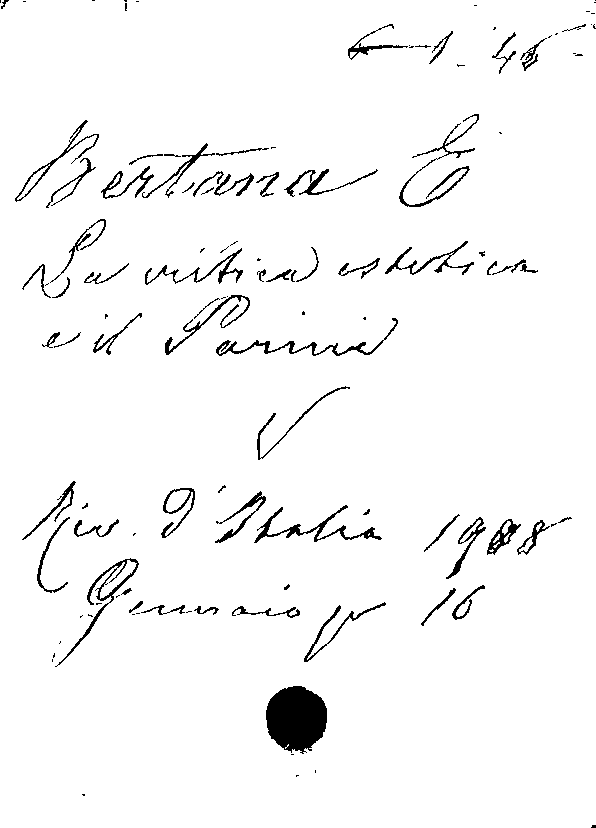 Bertana E
La critica estetica
e il Parini
Riv. d'Italia 1908
Gennaio p 16